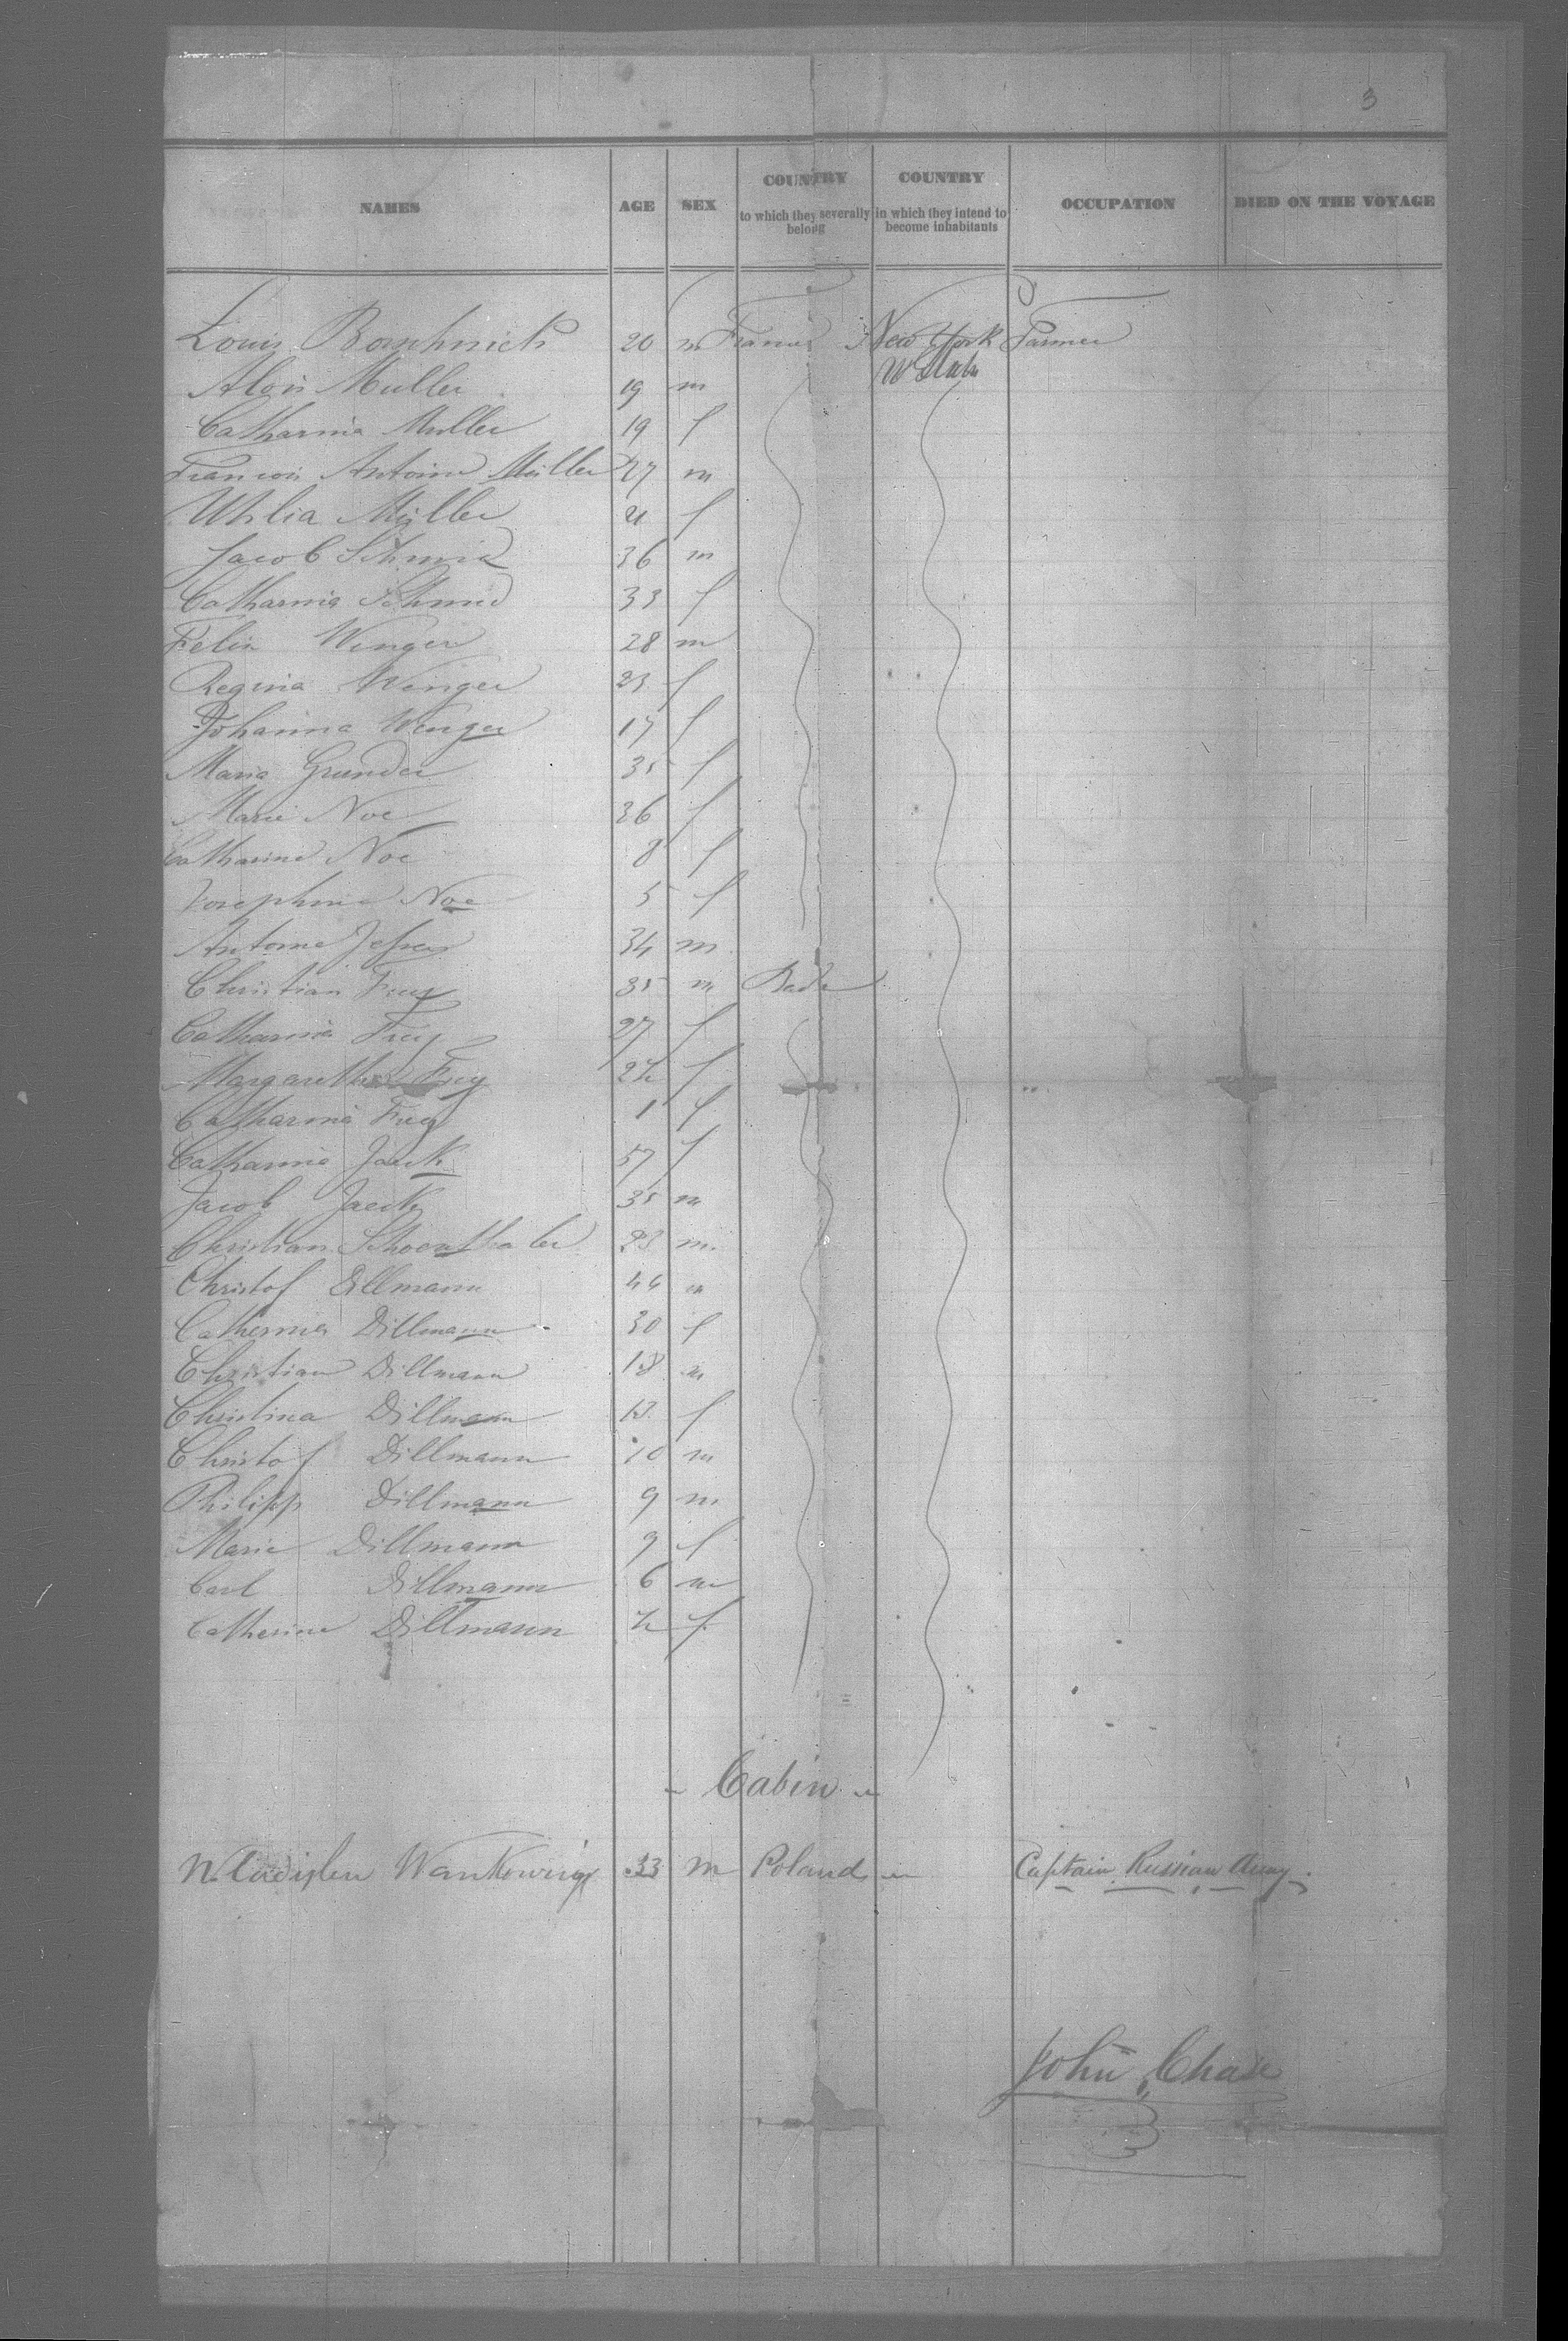 3
NAMES AGE SEX COUNTRY to which they severally belong COUNTRY in which they intend to become inhabitants OCCUPATION DIED ON THE VOYAGE
Louis 20 m France New York Farmer
Alois Muller 19 m
Catharina Muller 19 f
Francois Antoine Müller 27 m
Müller 21 f
Jacob Schmid 36 m
Catharina Schmid 33 f
Felix Wenger 28 m
Regina Wenger 23 f
Johanna Wenger 17 f
Maria Grunder 35 f
Marie Noe 36 f
Catharine Noe 8 f
Josephine Noe 5 f
Antoine 34 m
Christian Frey 35 m Bade
Catharina Frey 27 f
Margaretha Frey f
Catharina Frey 1 f
Catharina Jaeck 57 f
Jacob Jaeck 35 m
Christian Schoenthaler 23 m
Christof Dillmann 44 m
Catherina Dillmann 30 f
Christian Dillmann 18 m
Christina Dillmann 13 f
Christof Dillmann 10 m
Philipp Dillmann 9 m
Marie Dillmann 9 f
Carl Dillmann 6 m
Catherine Dillmann f
Cabin
33 m Poland Captain Russian Army.
John Chase